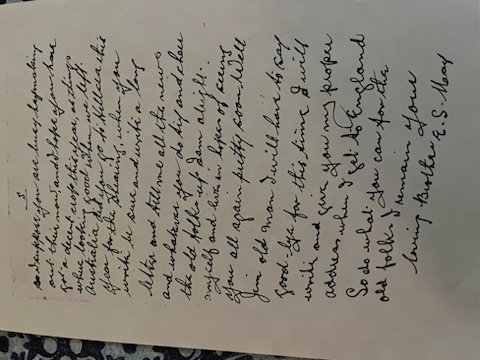 5
so I suppose you are busy haymaking
out this month and I hope you have
got a decent crop this year, as things
when looking good when we left
Australia did you go to
year for the shearing, when you
write be sure and write a long
letter and tell me all the news
and whatever you do try and keep
the old folks up I am alright
myself and live in hopes of seeing
you all again pretty soon Well
Jim old man I will have to say
good-bye for this time I will
write and give you my proper
address when I get to England
So do what you can for the
old folks I remain your
loving Brother E.S. May